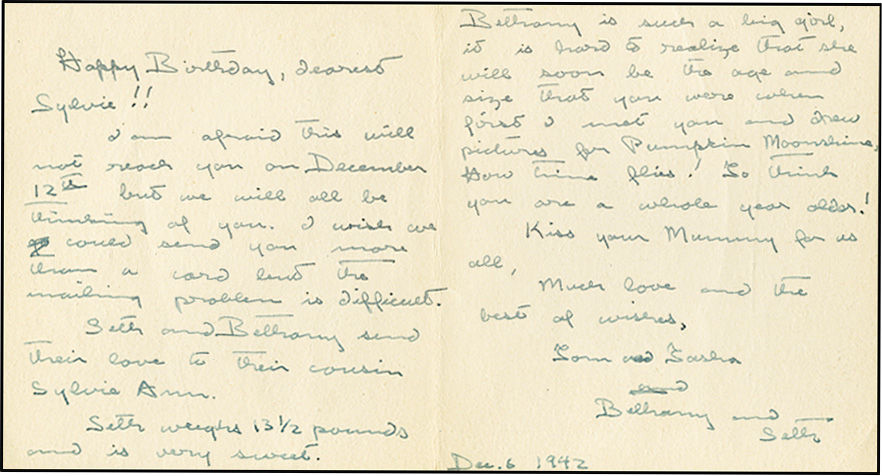 Happy Birthday, dearest
Sylvie !!
I am afraid this will
not reach you on December
12th but we will all be
thinking of you. I wish we
could send you more
than a card but the
mailing problem is difficult.
Seth and Bethany send
their love to their cousin
Sylvie Ann.
Seth weighs 13 1/2 pounds
and is very sweet.
Bethany is such a big girl,
it is hard to realize that she
will soon be the age and
size that you were when
first I met you and drew
pictures for Pumpkin Moonshine.
How time flies! To think
you are a whole year older!
Kiss your Mummy for us
all,
Much love and the
best of wishes,
Tom and Tasha
and
Bethany and
Seth
Dec. 6 1942